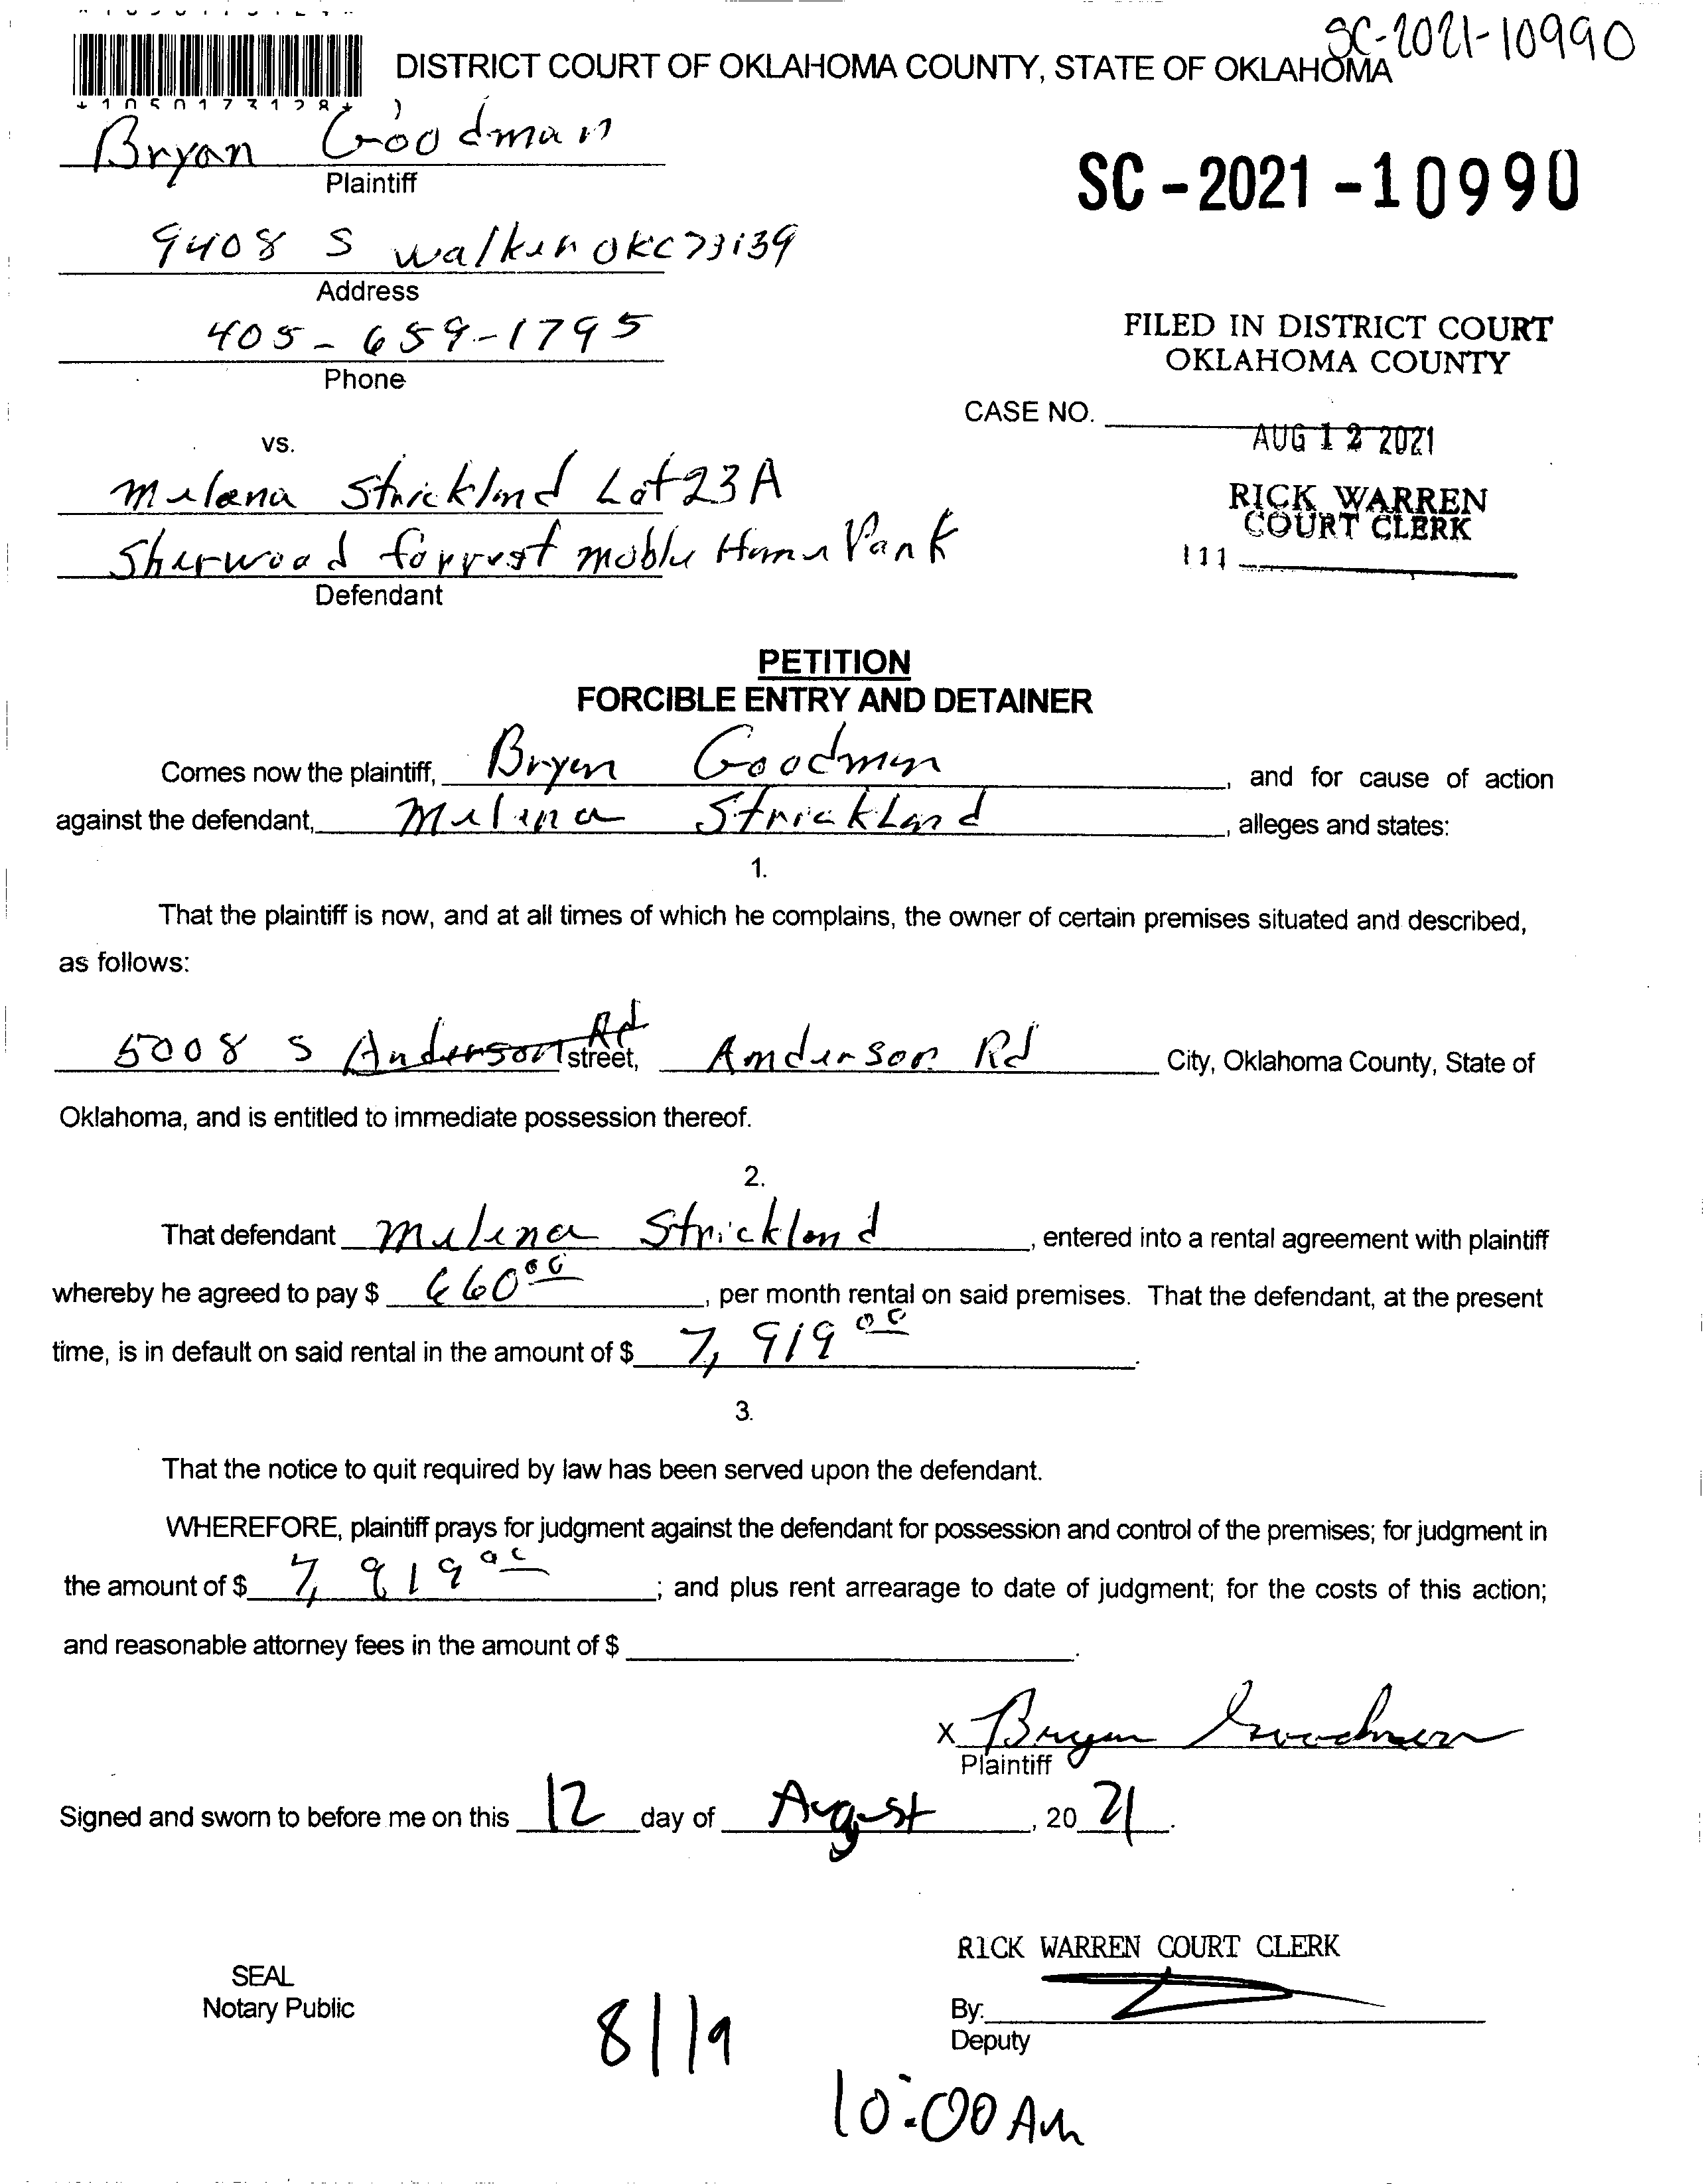 SC-2021-10990
DISTRICT COURT OF OKLAHOMA COUNTY, STATE OF OKLAHOMA
*1050173128*
Bryan Goodman
Plaintiff
SC-2021-10990
9408 S walker OKC 73139
Address
405-659-1795
Phone
FILED IN DISTRICT COURT
OKLAHOMA COUNTY
CASE NO.
AUG 12 2021
vs.
Melena Strickland Lot 23A
RICK WARREN
COURT CLERK
Sherwood forrest moble Home Park
111
Defendant
PETITION
FORCIBLE ENTRY AND DETAINER
Comes now the plaintiff, Bryan Goodman, and for cause of action
against the defendant, Melena Strickland, alleges and states:
1.
That the plaintiff is now, and at all times of which he complains, the owner of certain premises situated and described,
as follows:
5008 S Anderson Rd street, Anderson Rd City, Oklahoma County, State of
Oklahoma, and is entitled to immediate possession thereof.
2.
That defendant Melena Strickland, entered into a rental agreement with plaintiff
whereby he agreed to pay $ 660 00, per month rental on said premises. That the defendant, at the present
time, is in default on said rental in the amount of $ 7,919 00.
3.
That the notice to quit required by law has been served upon the defendant.
WHEREFORE, plaintiff prays for judgment against the defendant for possession and control of the premises; for judgment in
the amount of $ 7,919 00; and plus rent arrearage to date of judgment; for the costs of this action;
and reasonable attorney fees in the amount of $ .
X Bryan Goodman
Plaintiff
Signed and sworn to before me on this 12 day of August, 20 21.
RICK WARREN COURT CLERK
SEAL
Notary Public
By:
Deputy
8/19
10:00 AM